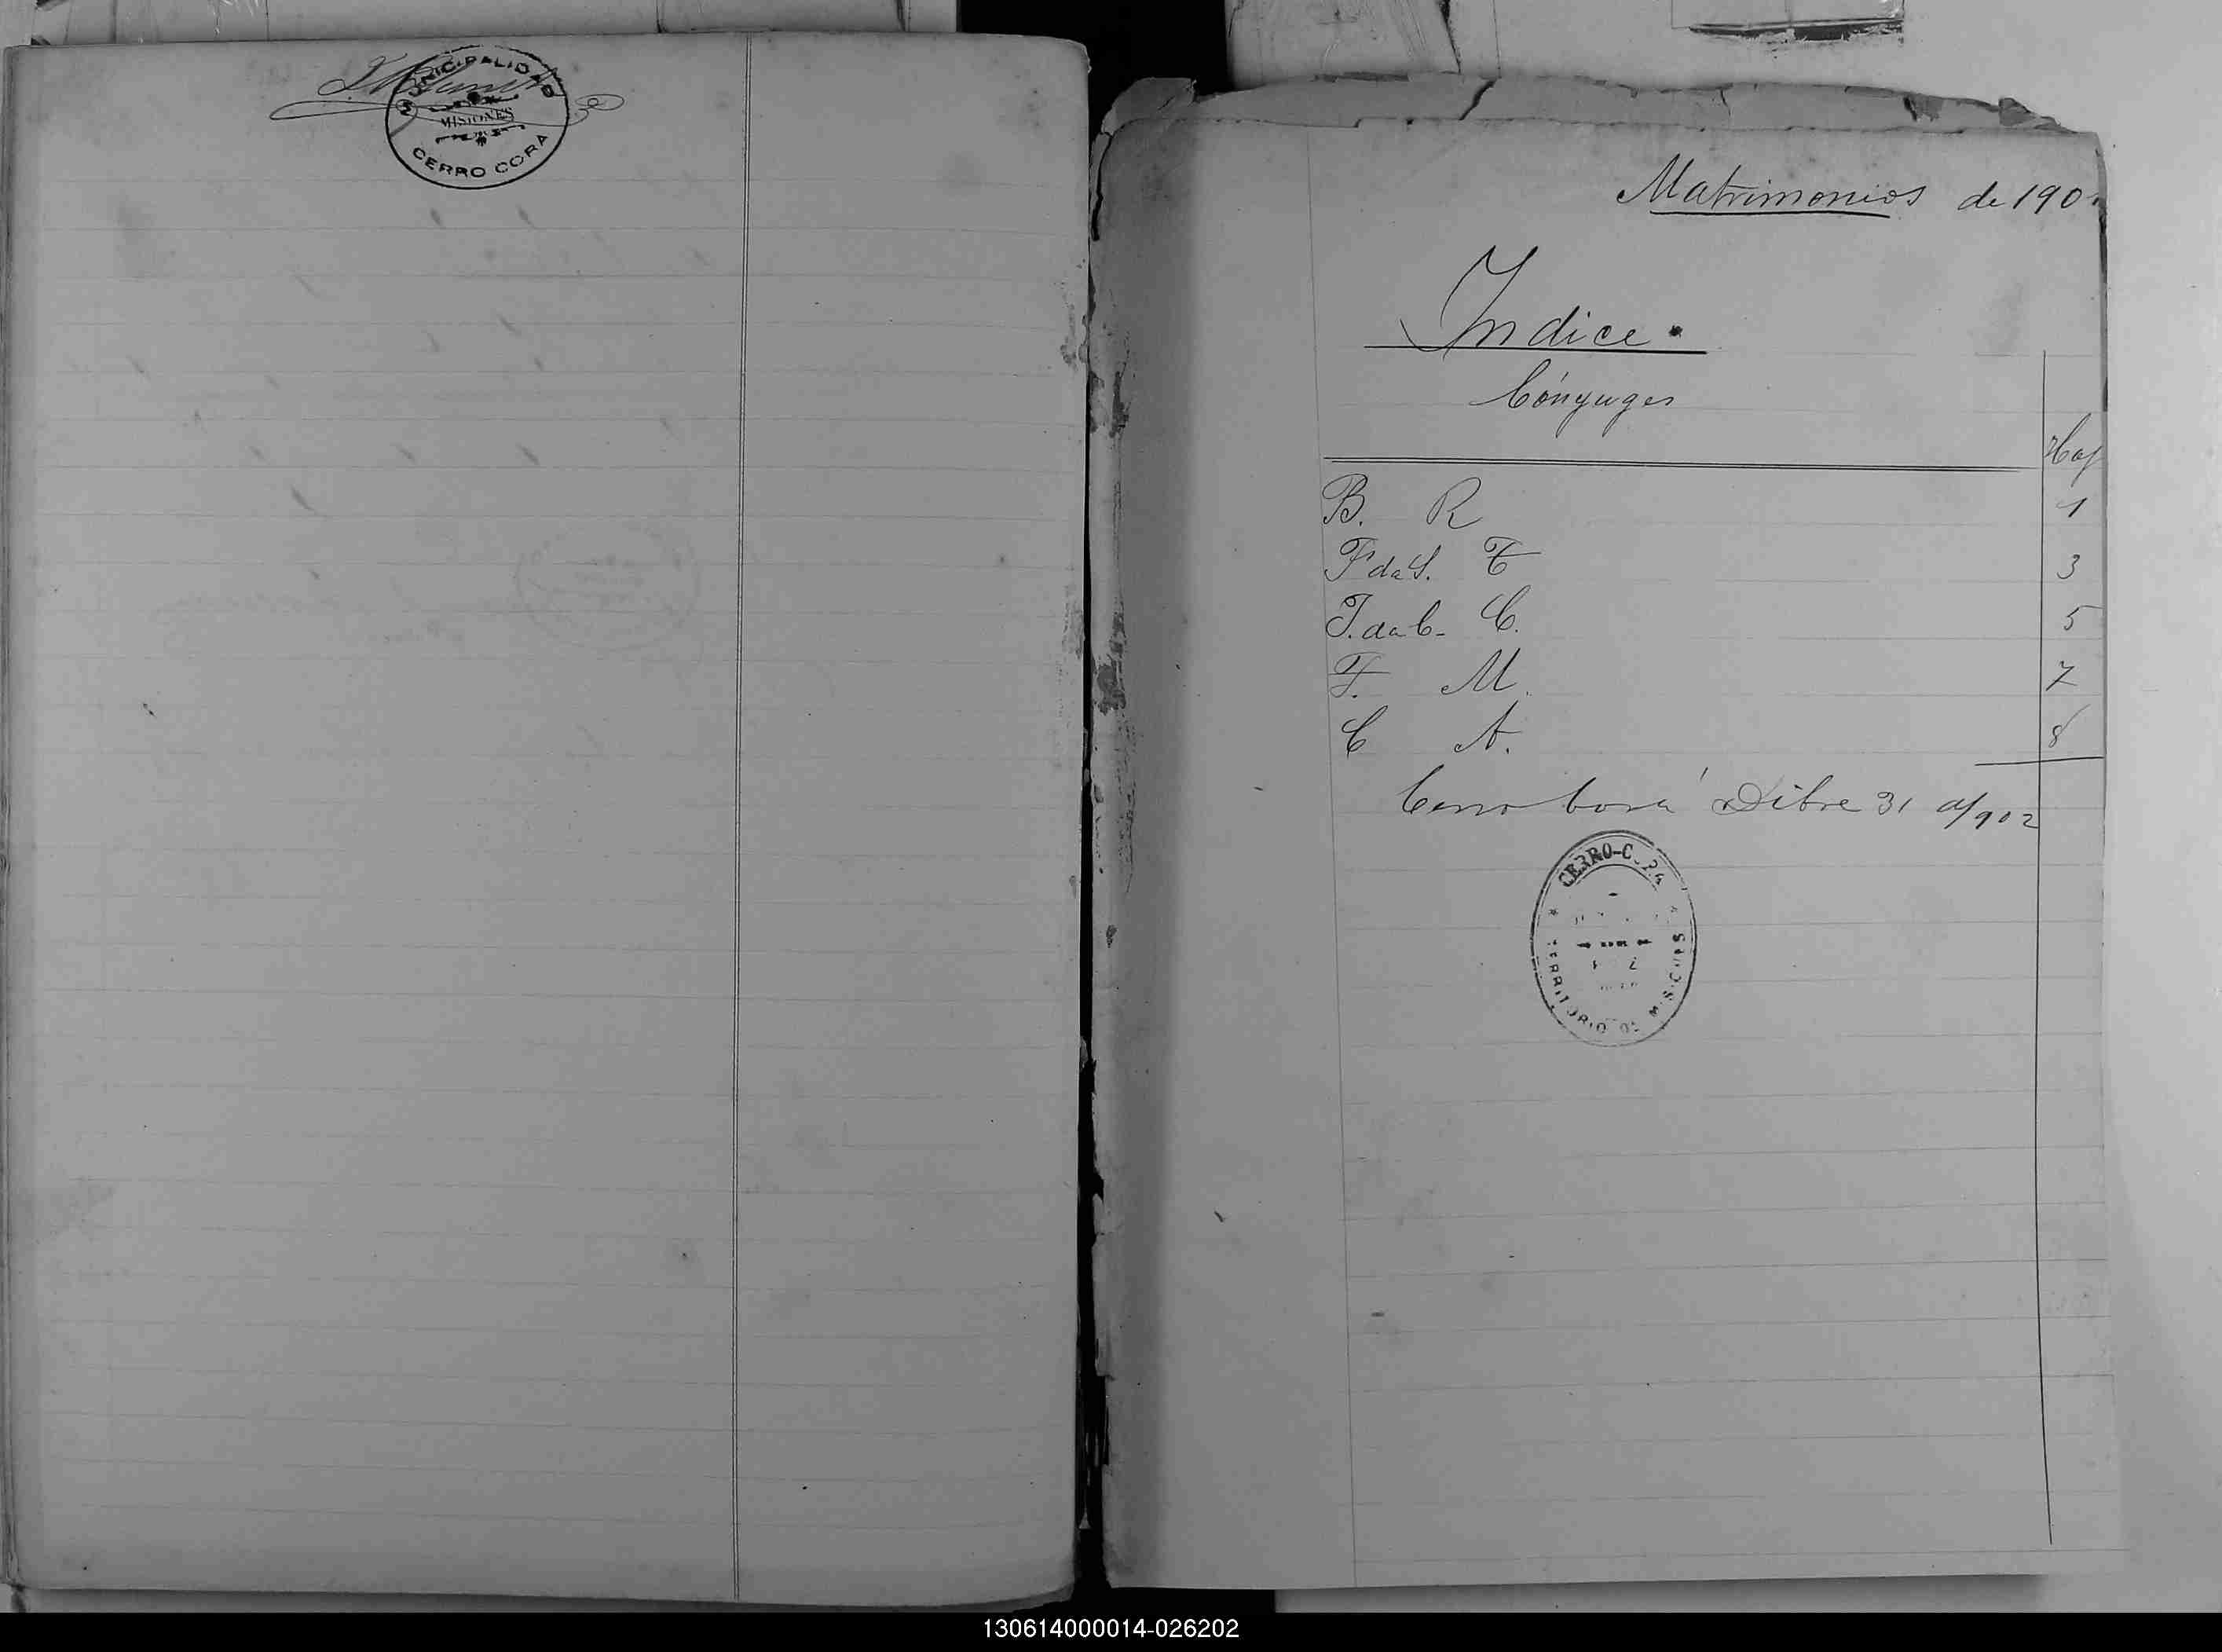 MUNICIPALIDAD
MISIONES
CERRO CORA
Matrimonios de 190
Indice.
Cónyuges
Hoj
B. R 1
F da S. T 3
J. da C. C. 5
F. M. 7
C A. 8
Cerro Corá Dibre 31 d/902
CERRO-C
TERRITORIO DE MISIONES
130614000014-026202